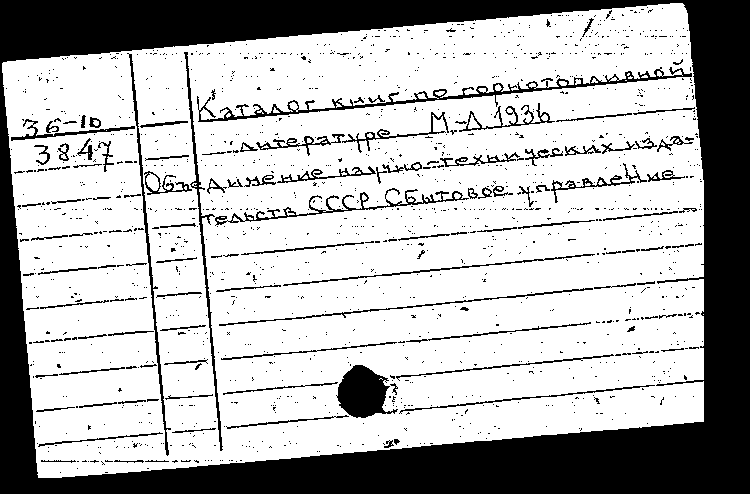 36-10
3847
Каталог книг по горнотопливной
литературе М.-Л 1936
Объединение научно-технических изда-
тельств СССР Сбытовое управление